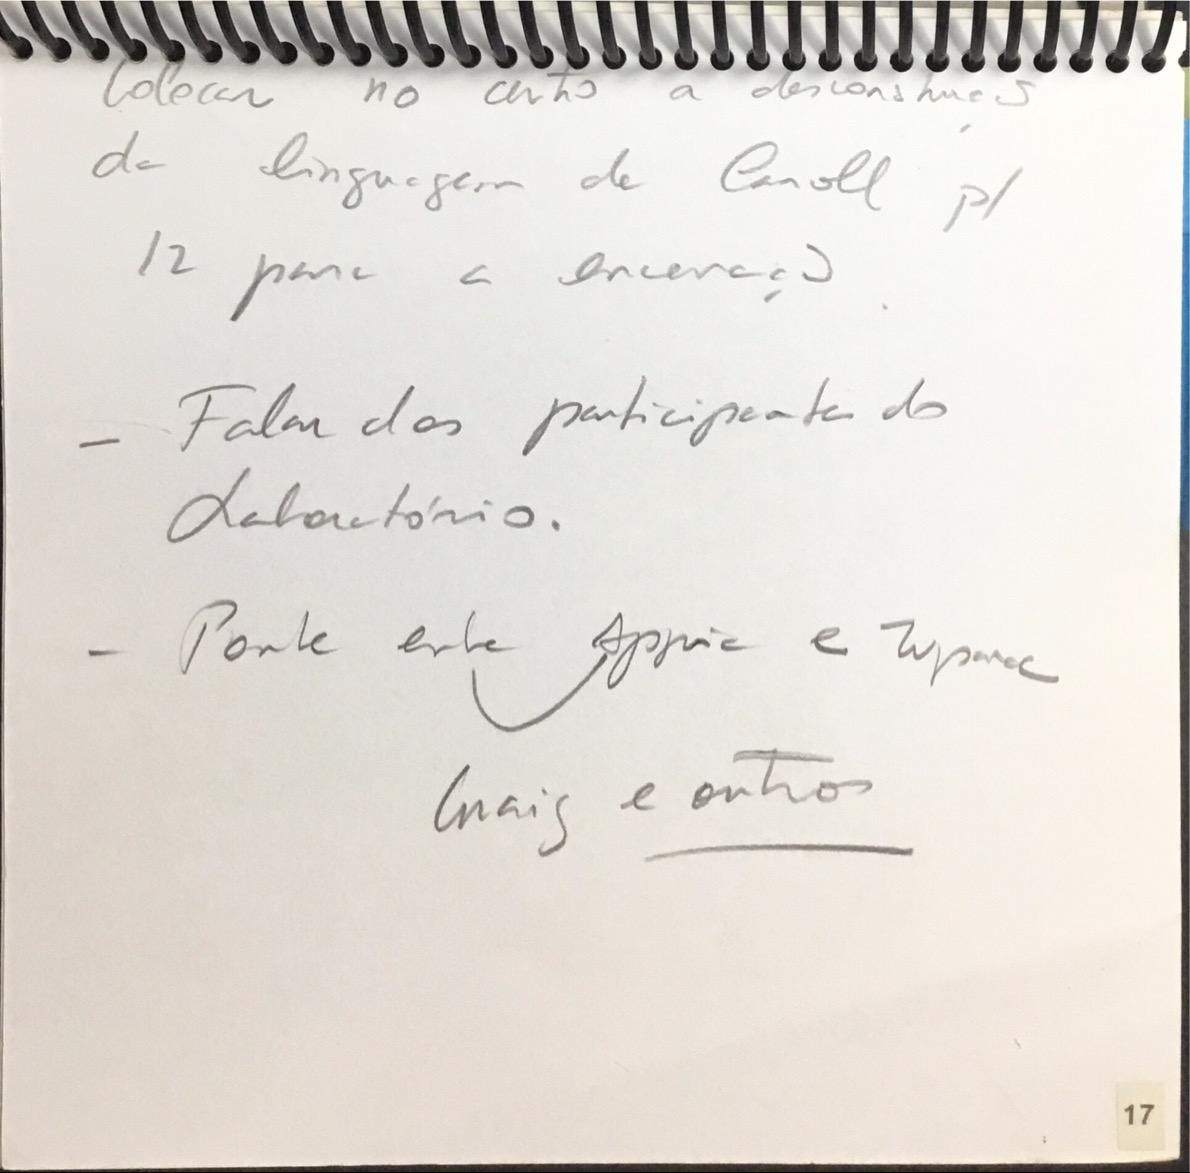 Colocar no certo a desconstrução
da linguagem de Carroll p/
12 para a encenação.
- Falar dos participantes do
Laboratório.
- Ponte entre Appia e
Craig e outros
17